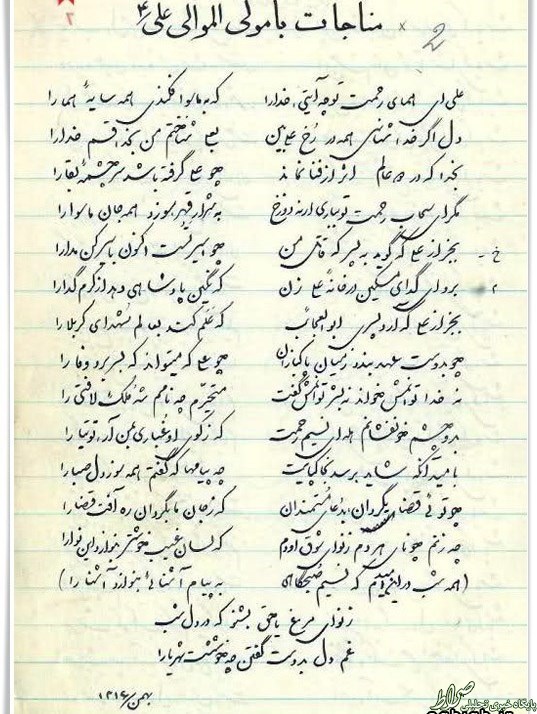 مناجات با مولی الموالی علی ع
علی ای همای رحمت تو چه آیتی خدا را که به ماسوا فکندی همه سایهٔ هما را
دل اگر خداشناسی همه در رخ علی بین به علی شناختم من بخدا قسم خدا را
بخدا که در دو عالم اثر از فنا نماند چو علی گرفته باشد سر چشمهٔ بقا را
مگر ای سحاب رحمت تو بباری ارنه دوزخ به شرار قهر سوزد همه جان ماسوا را
بجز از علی که گوید به پسر که قاتل من چو اسیر تست اکنون به اسیر کن مدارا
برو ای گدای مسکین در خانهٔ علی زن که نگین پادشاهی دهد از کرم گدا را
بجز از علی که آرد پسری ابوالعجائب که علم کند بعالم شهدای کربلا را
چو بدوست عهد بندد ز میان پاکبازان چو علی که میتواند که بسر برد وفا را
نه خدا توانمش خواند نه بشر توانمش گفت متحیرم چه نامم شه ملک لافتی را
بدو چشم خونفشانم هله ای نسیم رحمت که ز کوی او غباری بمن آر توتیا را
بامید آنکه شاید برسد بخاک پایت چه پیامها که گفتم همه سوز دل صبا را
چو تویی قضا بگردان بدعای مستمندان که ز جان ما بگردان ره آفت قضا را
چه زنم چو نای هر دم ز نوای شوق او دم که لسان غیب خوشتر بنوازد این نوا را
(همه شب در این امیدم که نسیم صبحگاهی به پیام آشنائی بنوازد آشنا را)
ز نوای مرغ یا حق بشنو که در دل شب
غم دل بدوست گفتن چه خوشست شهریارا
بهمن / ۱۳۱۶
صراط
پایگاه خبری تحلیلی